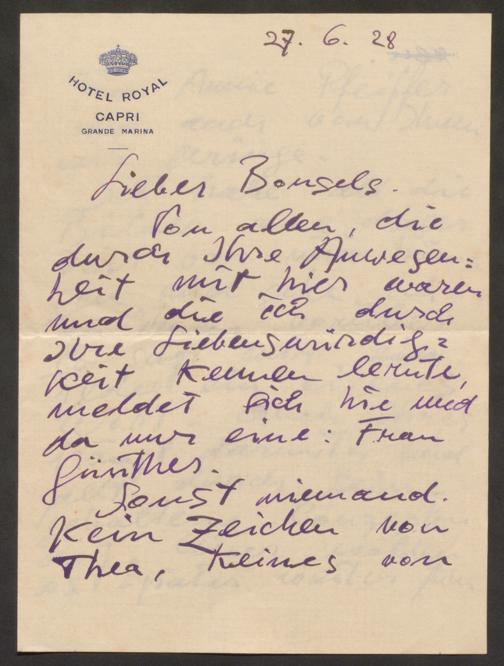 27. 6. 28
HOTEL ROYAL
CAPRI
GRANDE MARINA
Lieber Bonsels.
Von allen, die
durch Ihre Anwesen=
heit mit hier waren
und die ich durch
Ihre Liebenswürdig=
keit kennen lernte,
meldet sich hie und
da nur eine: Frau
Günther.
Sonst niemand.
Kein Zeichen von
Thea, keines von